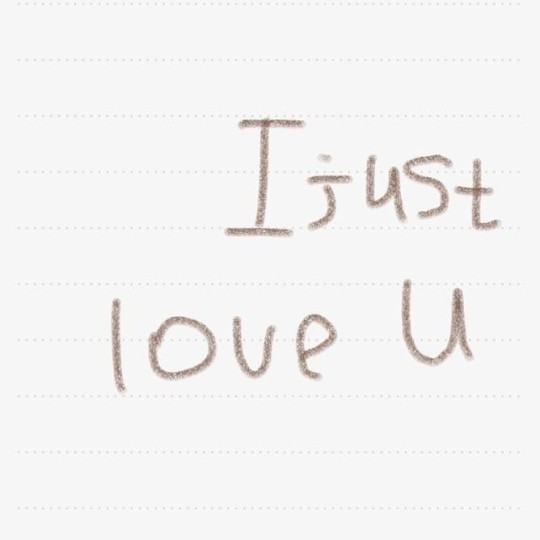 I just
love U